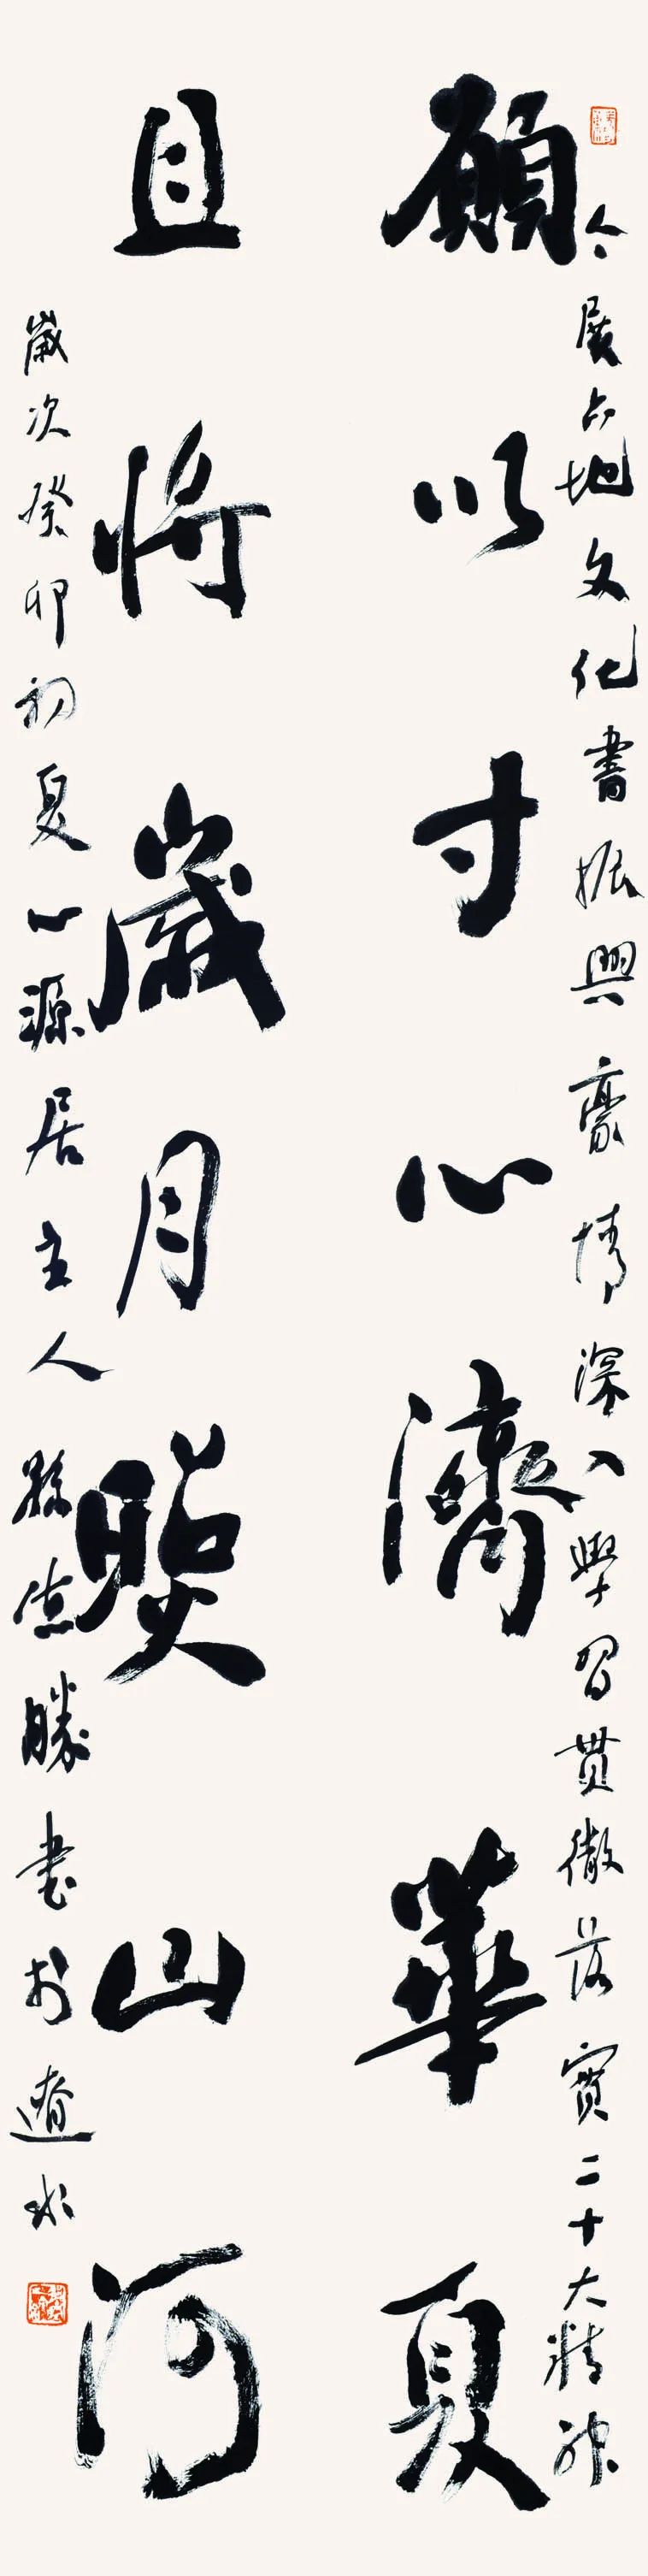 今展六地文化書振興豪情深入學習貫徹落實二十大精神
願以寸心濟華夏
且將歲月照山河
歲次癸卯初夏心源居主人孫志勝書於遼水